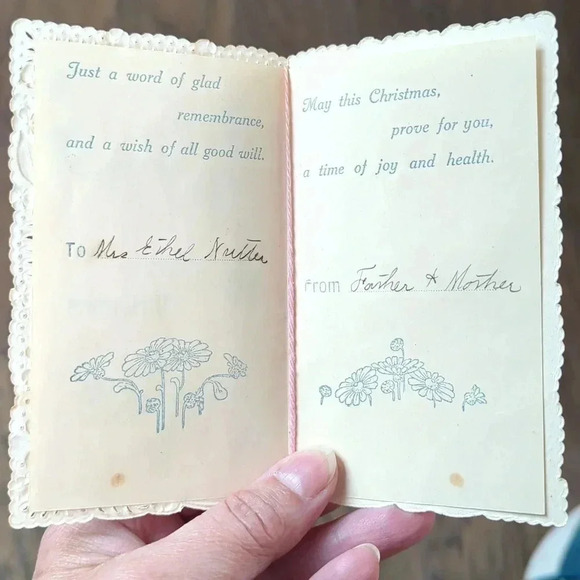 Just a word of glad
remembrance,
and a wish of all good will.
To Mrs Ethel Nutter
May this Christmas,
prove for you,
a time of joy and health.
From Father & Mother